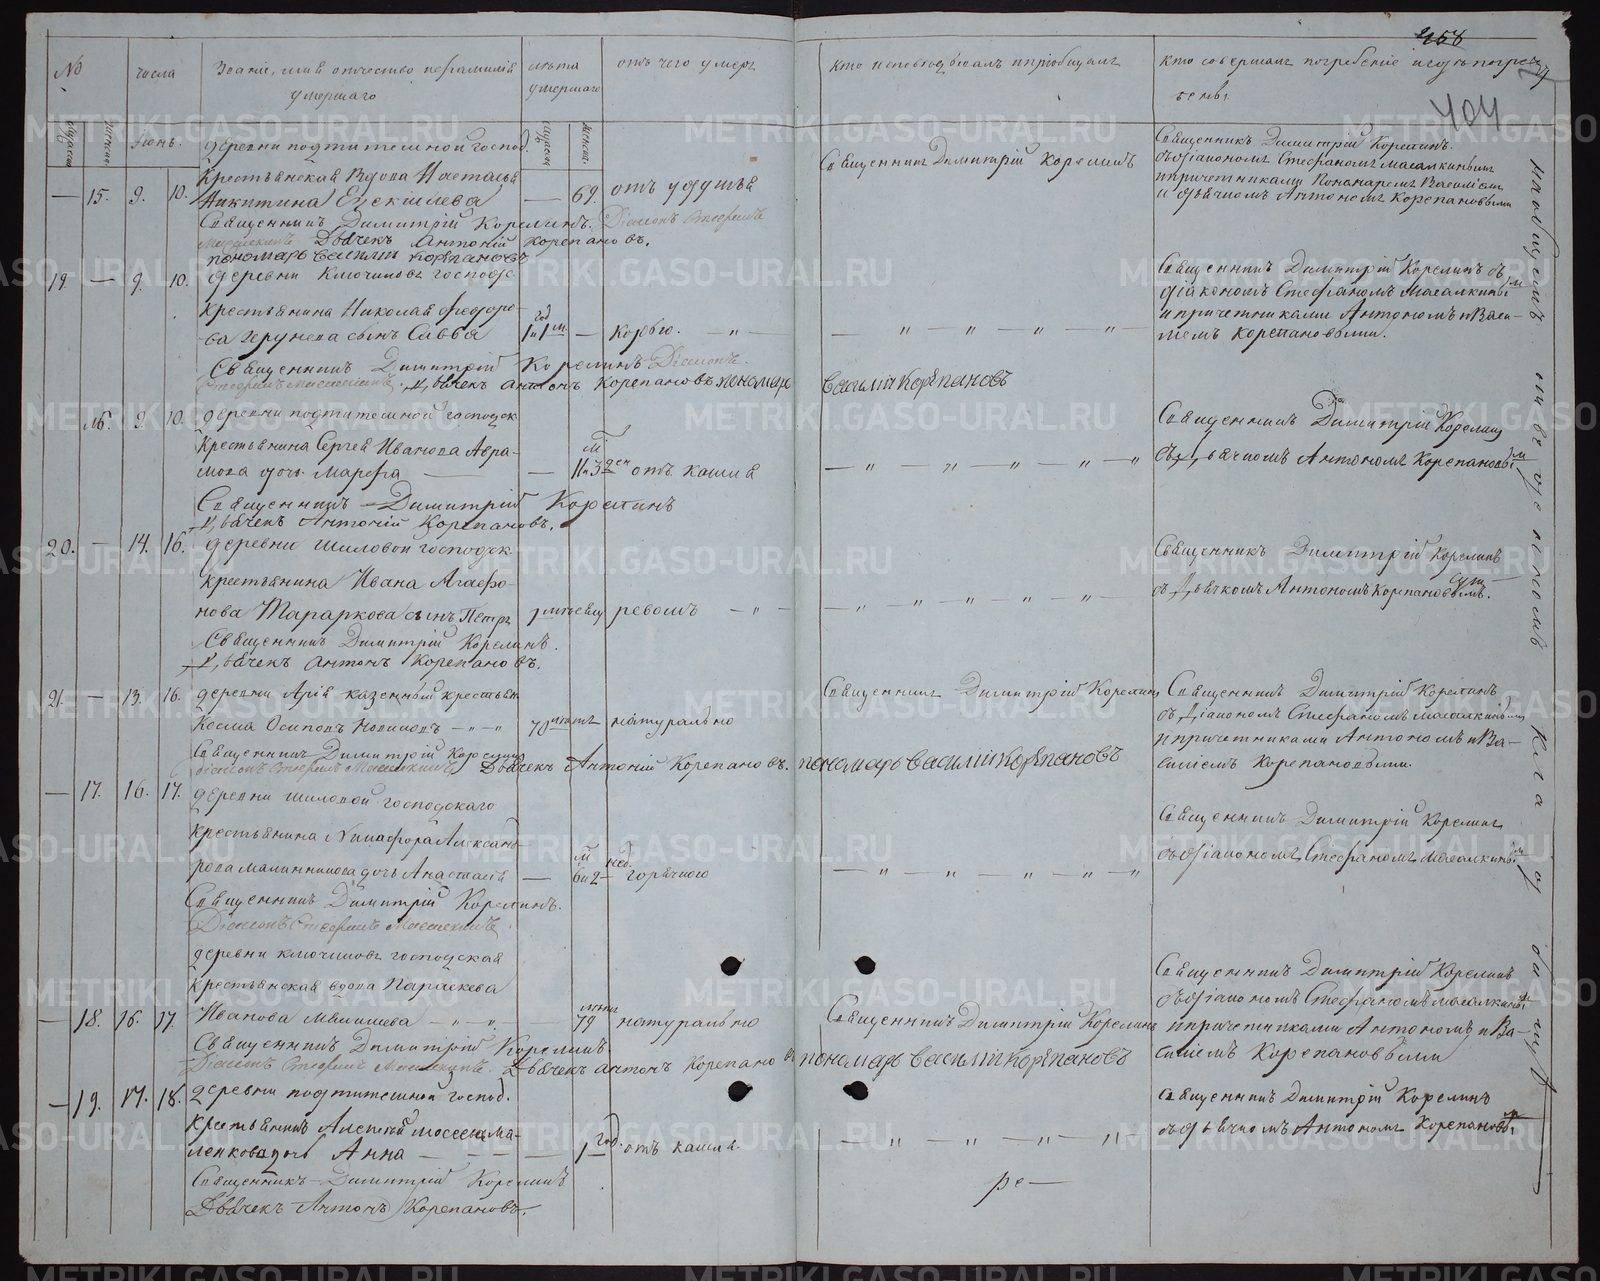 458
404
№
числа
Званіе, имя отчество и фамилія
умершаго
лѣта
умершаго
отъ чего умеръ
кто исповѣдывалъ и пріобщалъ
кто совершалъ погребеніе и гдѣ погре
бены
мужеска
женска
Іюнь.
мужеска
женска
деревни подтителной господ.
— 15. 9. 10.
Крестьянская Вдова Настасья
Никитина
— 69. отъ удушья
Священникъ Димитрій Корелинъ. Діаконъ Стефанъ
Масалкинъ Дьячекъ Антоній Корепановъ.
пономарь Василій Корѣпановъ
Священникъ Димитрій Корелинъ
Священникъ Димитрій Корелинъ.
съ діакономъ Стефаномъ Масалкинымъ
и причетниками Пономаремъ Василіемъ
и дьячкомъ Антономъ Корепановыми
19. — 9. 10. деревни Ключиковъ господс
Крестьянина Николая Федоро-
ва сынъ Савва
1 год и 1 м. — Корью. — „ —
Священникъ Димитрій Корелинъ Діаконъ
Стефанъ Масалкинъ. Дьячекъ Антонъ Корепановъ пономарь Василій Корѣпановъ
— „ — „ — „ — „ —
Священникъ Димитрій Корелинъ съ
діакономъ Стефаномъ Масалкинымъ
и причетниками Антономъ и Васи-
лиемъ Корепановыми.
16. 9. 10. деревни подтителной господск
Крестьянина Сергея Иванова Авра-
мова дочь Марфа
— 11 м. и 3 ден отъ кашля
Священникъ Димитрій Корелинъ
Дьячекъ Антоній Корепановъ.
— „ — „ — „ — „ — „
Священникъ Димитрій Корелинъ
съ Дьячкомъ Антономъ Корепановымъ
20. — 14. 16. деревни Шиловой господск
крестьянина Ивана Агафо-
нова Тараркова сынъ Петръ
ревомъ — „ —
Священникъ Димитрій Корелинъ.
Дьячекъ Антонъ Корепановъ.
— „ — „ — „ — „ —
Священникъ Димитрій Корелинъ
съ Дьячкомъ Антономъ Корепановымъ.
21. — 13. 16. деревни Арія казенный крестьян
Косма Осиповъ Новиковъ — „ — „
70 лѣтъ натурально
Священникъ Димитрій Корелинъ
діаконъ Стефанъ Масалкинъ Дьячекъ Антоній Корепановъ. пономарь Василій Корѣпановъ
Священникъ Димитрій Корелинъ
Священникъ Димитрій Корелинъ
съ Діакономъ Стефаномъ Масалкинымъ
и причетниками Антономъ и Ва-
силіемъ Корепановыми.
— 17. 16. 17. деревни Шиловой господскаго
Крестьянина Никафора Александ
рова Малинникова дочь Анастасія
— 6 м. и 2 нед. горячкою
Священникъ Димитрій Корелинъ.
Діаконъ Стефанъ Масалкинъ.
— „ — „ — „ — „ — „
Священникъ Димитрій Корелинъ
съ діакономъ Стефаномъ Масалкинымъ
деревни Ключиковъ господская
крестьянская вдова Параскева
— 18. 16. 17. Иванова — „ — „
79 лѣтъ натурально
Священникъ Димитрій Корелинъ.
Діаконъ Стефанъ Масалкинъ. Дьячекъ Антонъ Корепановъ пономарь Василій Корѣпановъ
Священникъ Димитрій Корелинъ
Священникъ Димитрій Корелинъ
съ діакономъ Стефаномъ Масалкинымъ
и причетниками Антономъ и Ва-
силіемъ Корепановыми
— 19. 17. 18. деревни подтителной господ.
Крестьянина Алексей
дочь Анна — — —
1 год. отъ кашля
Священникъ Димитрій Корелинъ
Дьячекъ Антонъ Корепановъ.
— „ — „ — „ — „ —
Священникъ Димитрій Корелинъ
съ дьячкомъ Антономъ Корепановымъ
ре—
METRIKI.GASO-URAL.RU